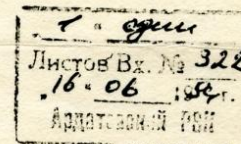 „ 1 " один
Листов Вх. № 322
„16" 06 1954г.
Ардатовский РВК